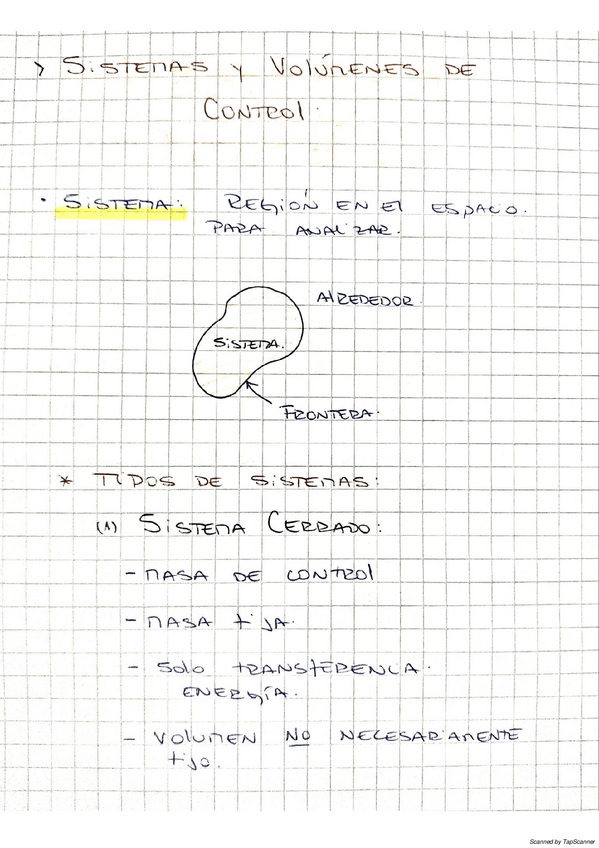 > Sistemas y Volúmenes de
Control.
• Sistema: Región en el espacio.
para analizar.
Alrededor.
Sistema.
Frontera.
* Tipos de sistemas:
(1) Sistema Cerrado:
- masa de control
- masa fija.
- Solo transferencia.
energía.
- Volumen no necesariamente
fijo.
Scanned by TapScanner